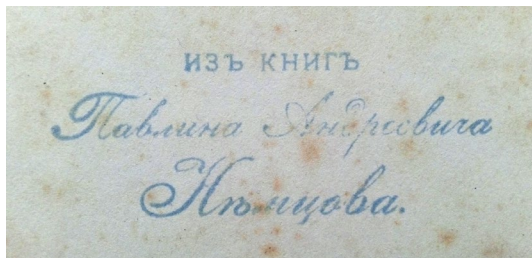 ИЗЪ КНИГЪ
Павлина Андреевича
Нѣмцова.